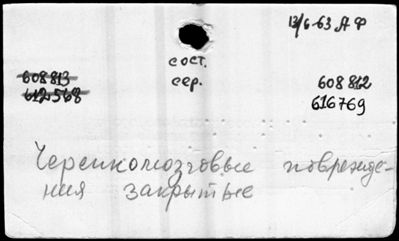 13/6-63 А Ф
сост.
сер.
608813
612568
608812
616769
Черепномозговые поврежде-
ния закрытые